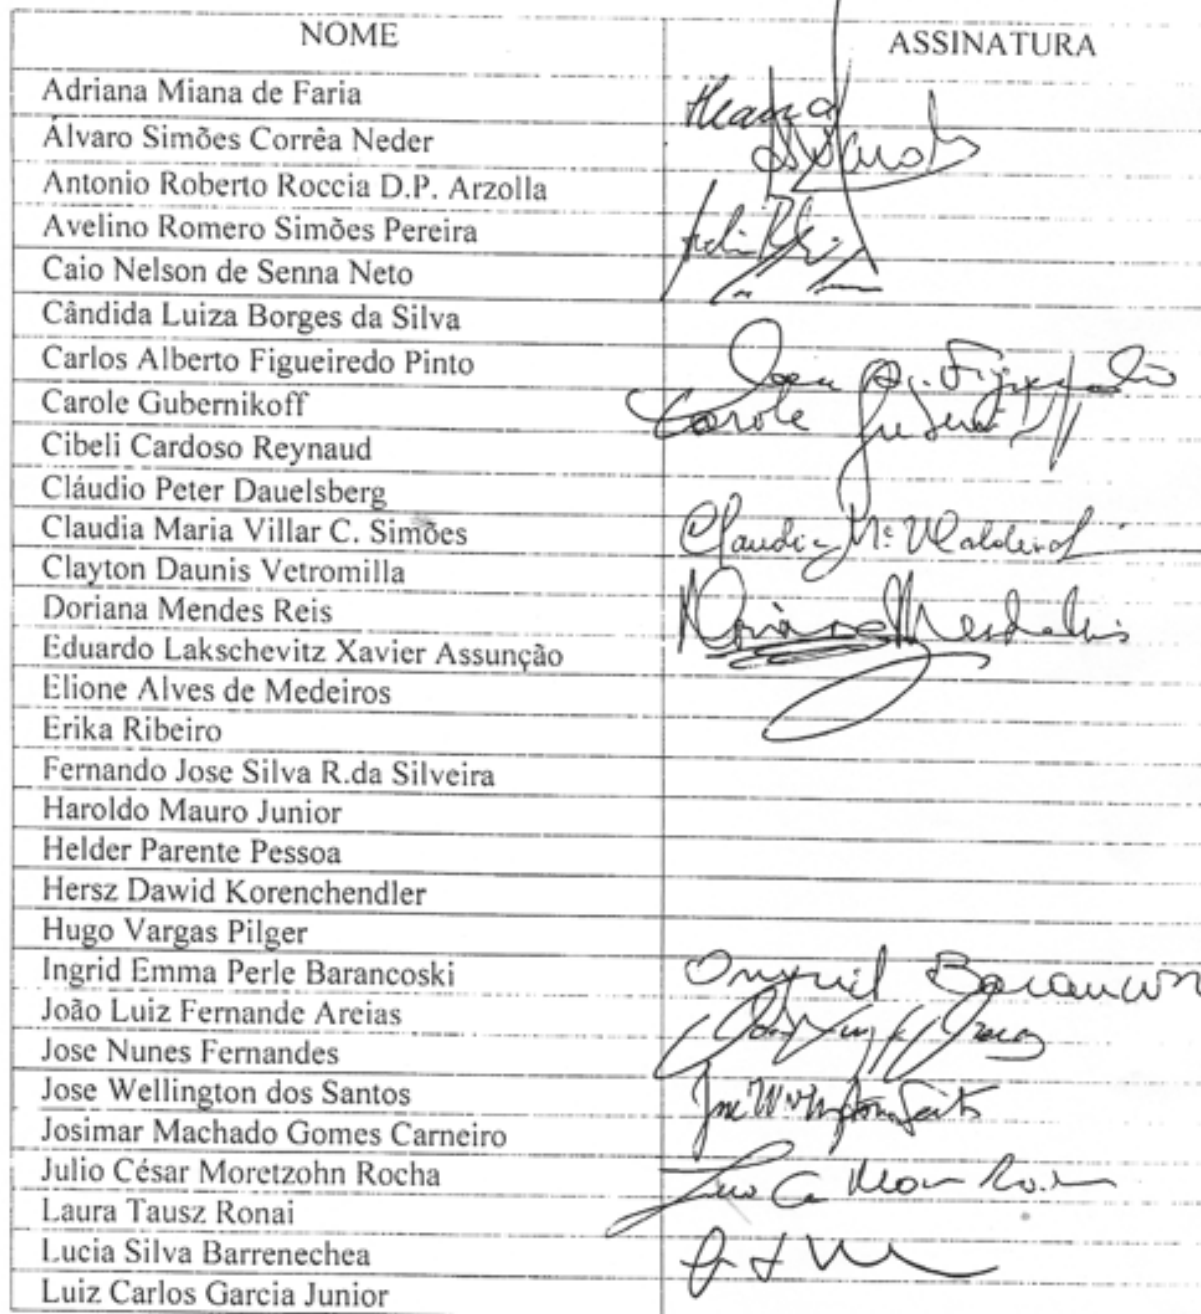 NOME ASSINATURA
Adriana Miana de Faria
Álvaro Simões Corrêa Neder
Antonio Roberto Roccia D.P. Arzolla
Avelino Romero Simões Pereira
Caio Nelson de Senna Neto
Cândida Luiza Borges da Silva
Carlos Alberto Figueiredo Pinto
Carole Gubernikoff Carole
Cibeli Cardoso Reynaud
Cláudio Peter Dauelsberg
Claudia Maria Villar C. Simões Claudia
Clayton Daunis Vetromilla
Doriana Mendes Reis
Eduardo Lakschevitz Xavier Assunção
Elione Alves de Medeiros
Erika Ribeiro
Fernando Jose Silva R.da Silveira
Haroldo Mauro Junior
Helder Parente Pessoa
Hersz Dawid Korenchendler
Hugo Vargas Pilger
Ingrid Emma Perle Barancoski
João Luiz Fernande Areias
Jose Nunes Fernandes
Jose Wellington dos Santos
Josimar Machado Gomes Carneiro
Julio César Moretzohn Rocha
Laura Tausz Ronai
Lucia Silva Barrenechea
Luiz Carlos Garcia Junior